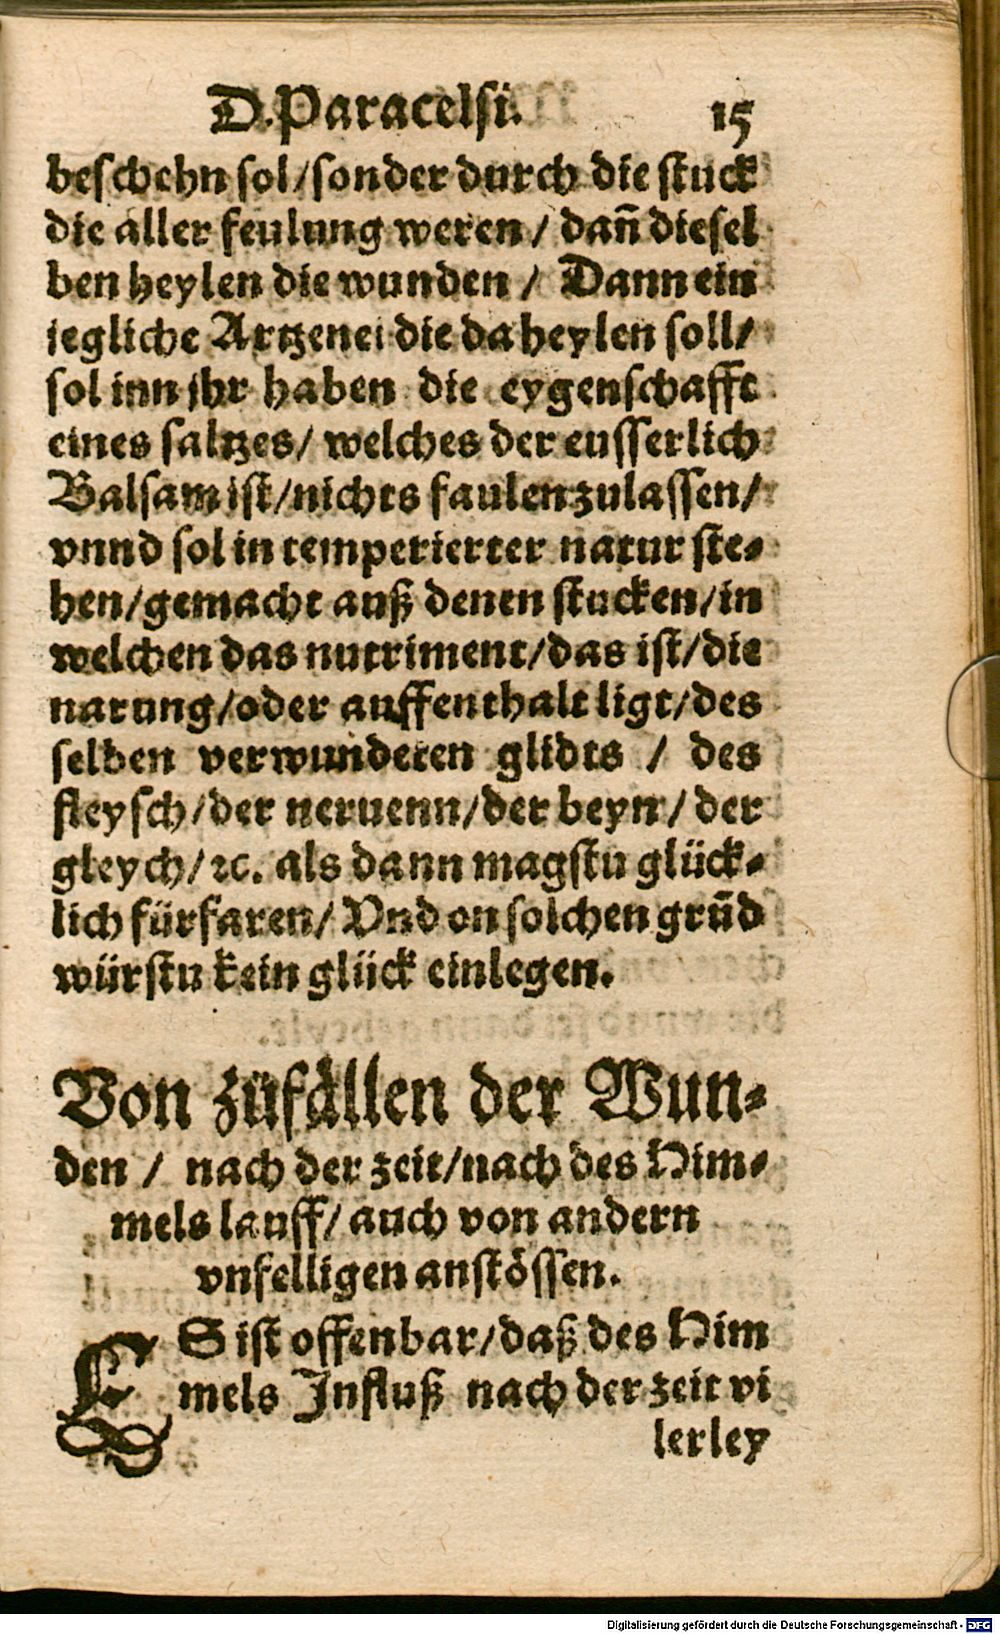 D. Paracelsi. 15
beschehn sol/sonder durch die stuck
die aller feulung weren / dañ diesel
ben heylen die wunden / Dann ein
jegliche Artzenei die da heylen soll/
sol inn jhr haben die eygenschafft
eines saltzes/ welches der eusserlich
Balsam ist/nichts faulen zulassen/
vnnd sol in temperierter natur ste-
hen/gemacht auß denen stucken/in
welchen das nutriment/das ist/die
narung/oder auffenthalt ligt/des
selben verwundeten glidts / des
fleysch/der neruenn/der beyn/ der
gleych/ꝛc. als dann magstu glück-
lich fürfaren/ Vnd on solchen grūd
würstu kein glück einlegen.
Von zůfällen der Wun-
den / nach der zeit/nach des Him-
mels lauff/ auch von andern
vnfelligen anstössen.
ES ist offenbar/daß des Him
mels Influß nach der zeit vi
lerley
Digitalisierung gefördert durch die Deutsche Forschungsgemeinschaft - DFG